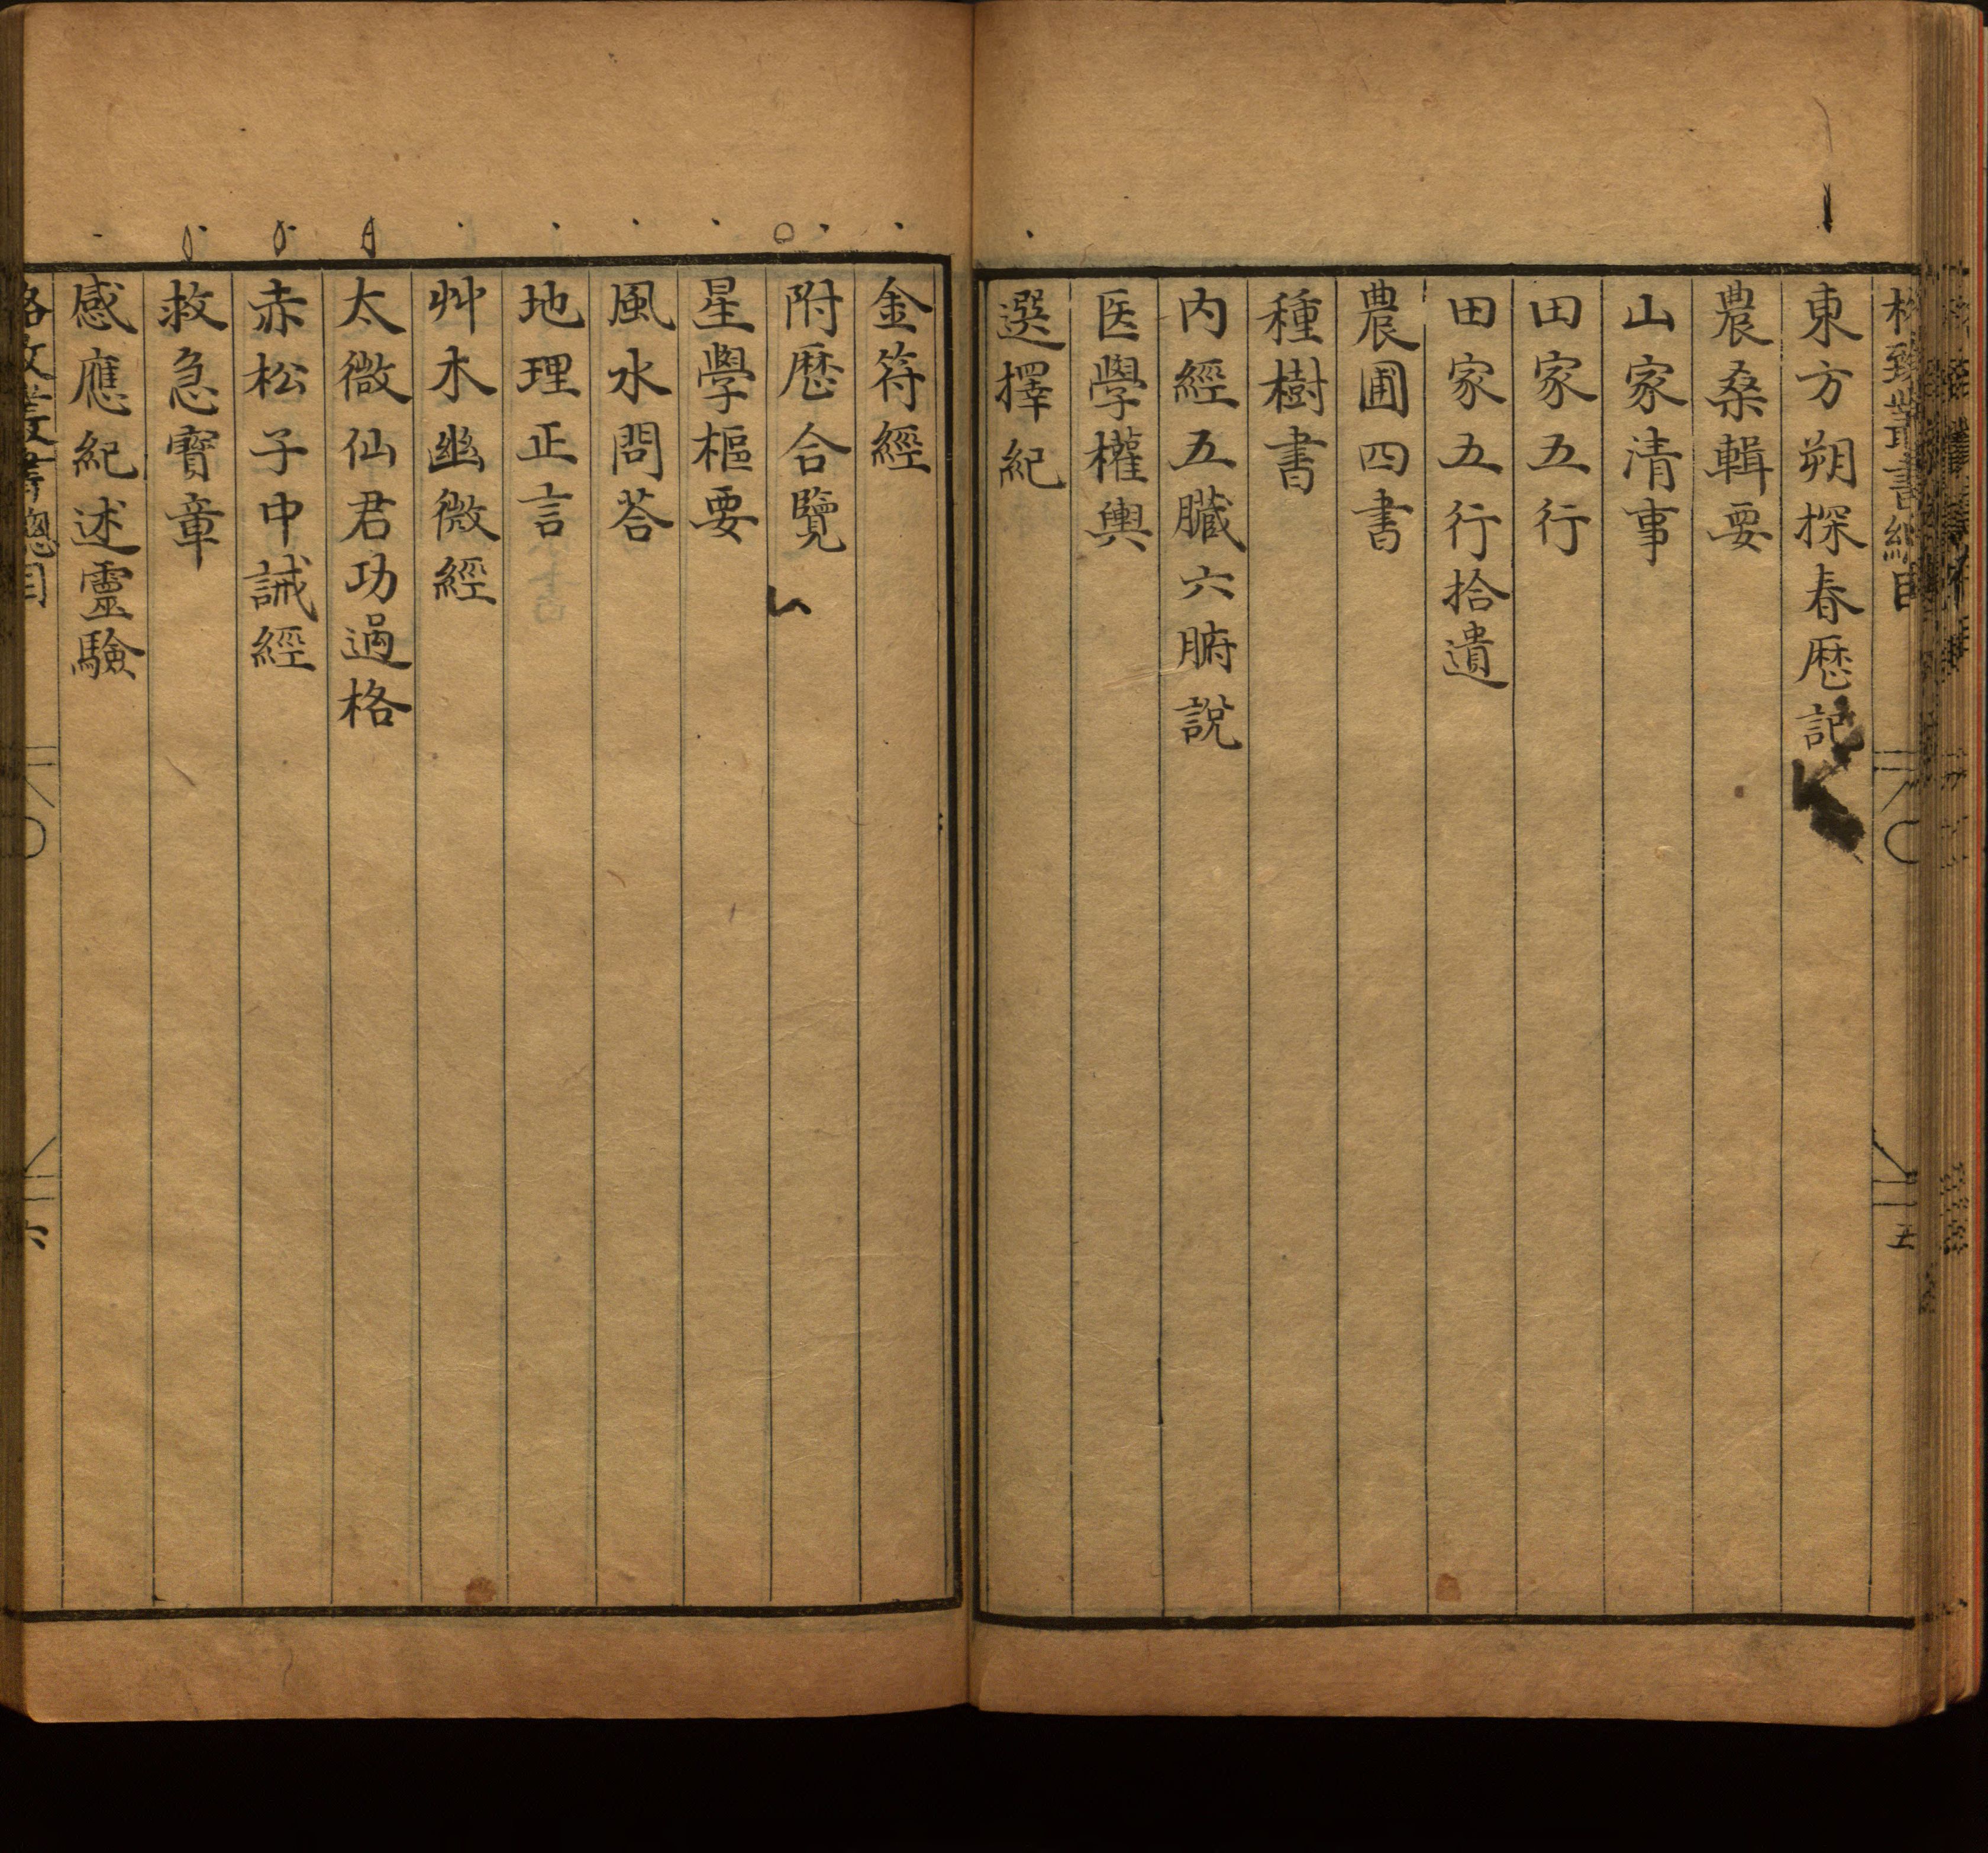 格致叢書總目
五
東方朔探春厯記
農桑輯要
山家清事
田家五行
田家五行拾遺
農圃四書
種樹書
內經五臟六腑說
医學權輿
選擇紀
金符經
附厯合覽
星學樞要
風水問荅
地理正言
艸木幽微經
太微仙君功過格
赤松子中誡經
救急寶章
感應紀述靈驗
格致叢書總目
六